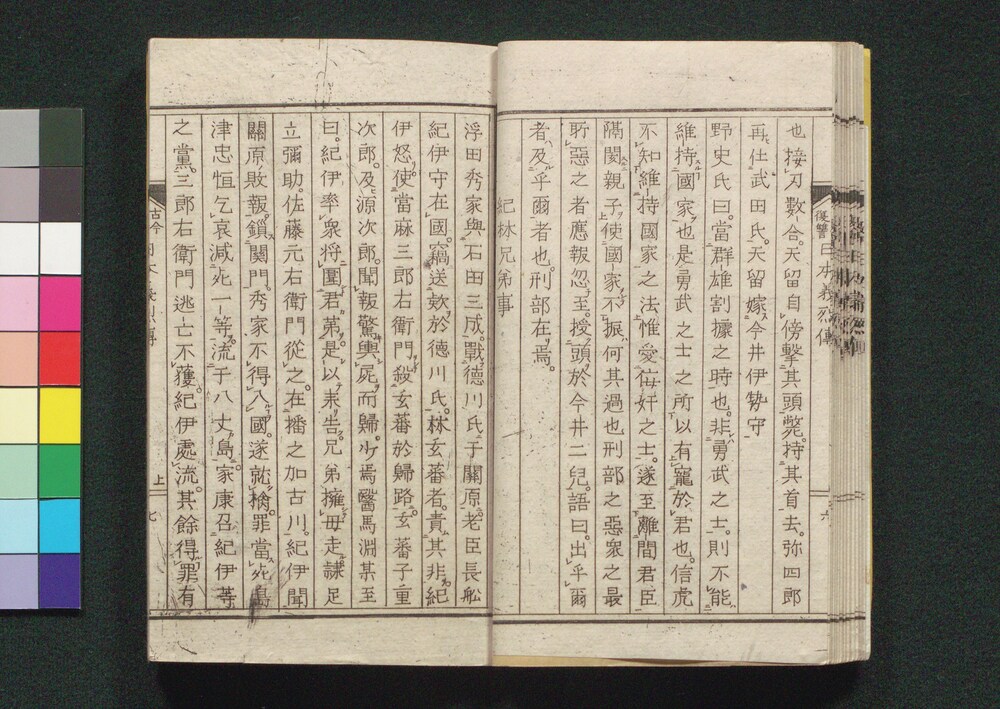 也接刃數合。天留自傍擊其頭斃。持其首去。弥四郎
再仕武田氏。天留嫁今井伊勢守
野史氏曰。當群雄割據之時也。非勇武之士。則不能
維持國家也。是勇武之士之所以有寵於君也。信虎
不知維持國家之法。惟愛佞奸之士。遂至離間君臣
隔閡親子。使國家不振。何其過也。刑部之惡衆之最
所惡之者。應報忽至。授頭於今井二兒。語曰。出乎爾
者。及乎爾者也。刑部在焉。
紀林兄弟事
浮田秀家與石田三成。戰德川氏于關原。老臣長舩
紀伊守在國。竊送欵於德川氏。林玄蕃者。責其非。紀
伊怒。使當麻三郎右衛門殺玄蕃於歸路。玄蕃子重
次郎。及源次郎。聞報驚輿屍而歸。少焉醫馬淵某至
曰。紀伊率衆將圍君弟。是以來告。兄弟擁母走謙足
立彌助。佐藤元右衛門從之。在播之加古川。紀伊聞
關原敗報。鎖関門。秀家不得入國。遂就擒。罪當死島
津忠恒乞哀減死一等。流于八丈島。家康召紀伊等
之黨。三郎右衛門逃亡不獲。紀伊處流。其餘得罪有
復讐 日本義烈傳
六
古今 日本義烈傳
上
七